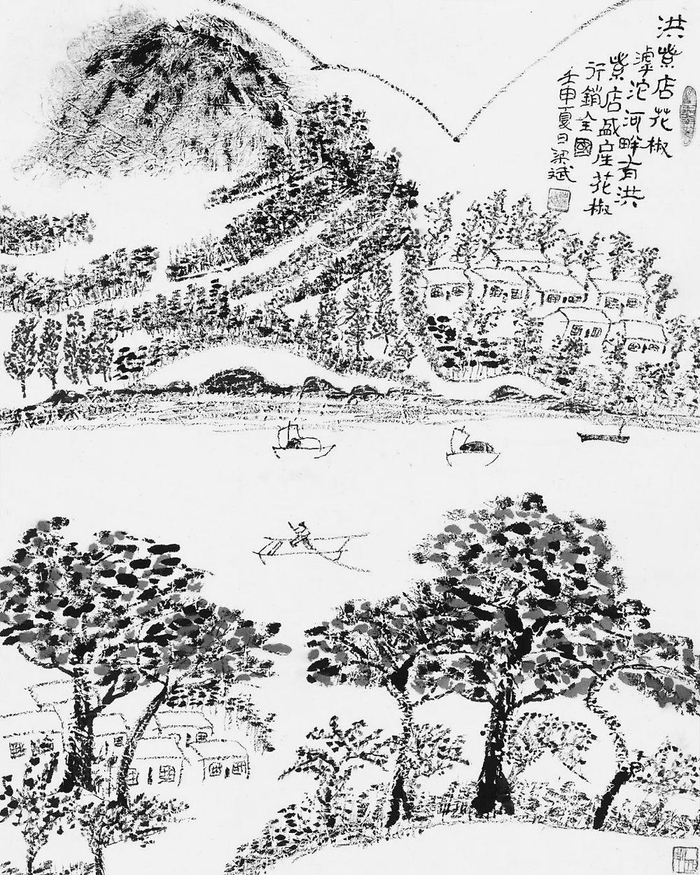 洪紫店花椒
滹沱河畔有洪
紫店盛産花椒
行銷全國
壬申夏日梁斌